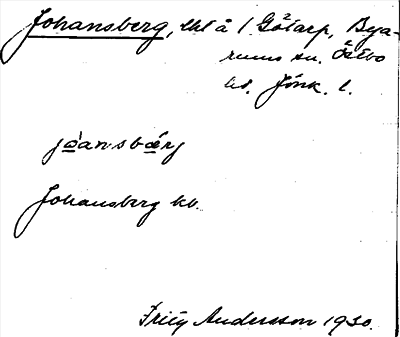 Johansberg, lht å 1 Götarp, Bya-
rums sn. Östbo
hd. Jönk. l.
jòansbærj
Johansberg kb.
Fritz Andersson 1930.